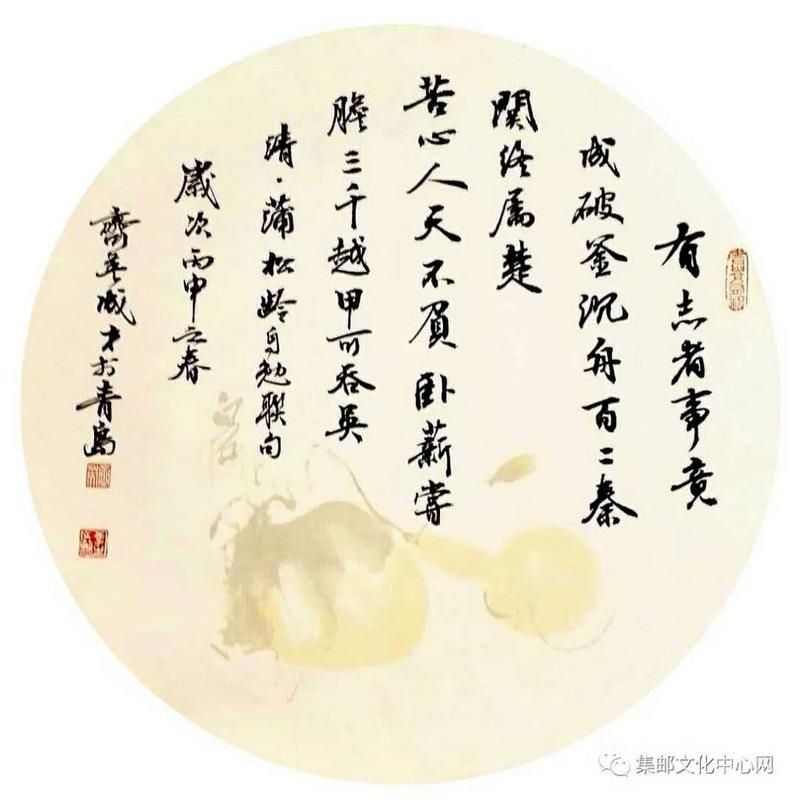 有志者事竟
成破釜沉舟百二秦
關终属楚
苦心人天不負卧薪嘗
膽三千越甲可吞吴
清·蒲松龄自勉聯句
歲次丙申之春
成才於青島
集邮文化中心网